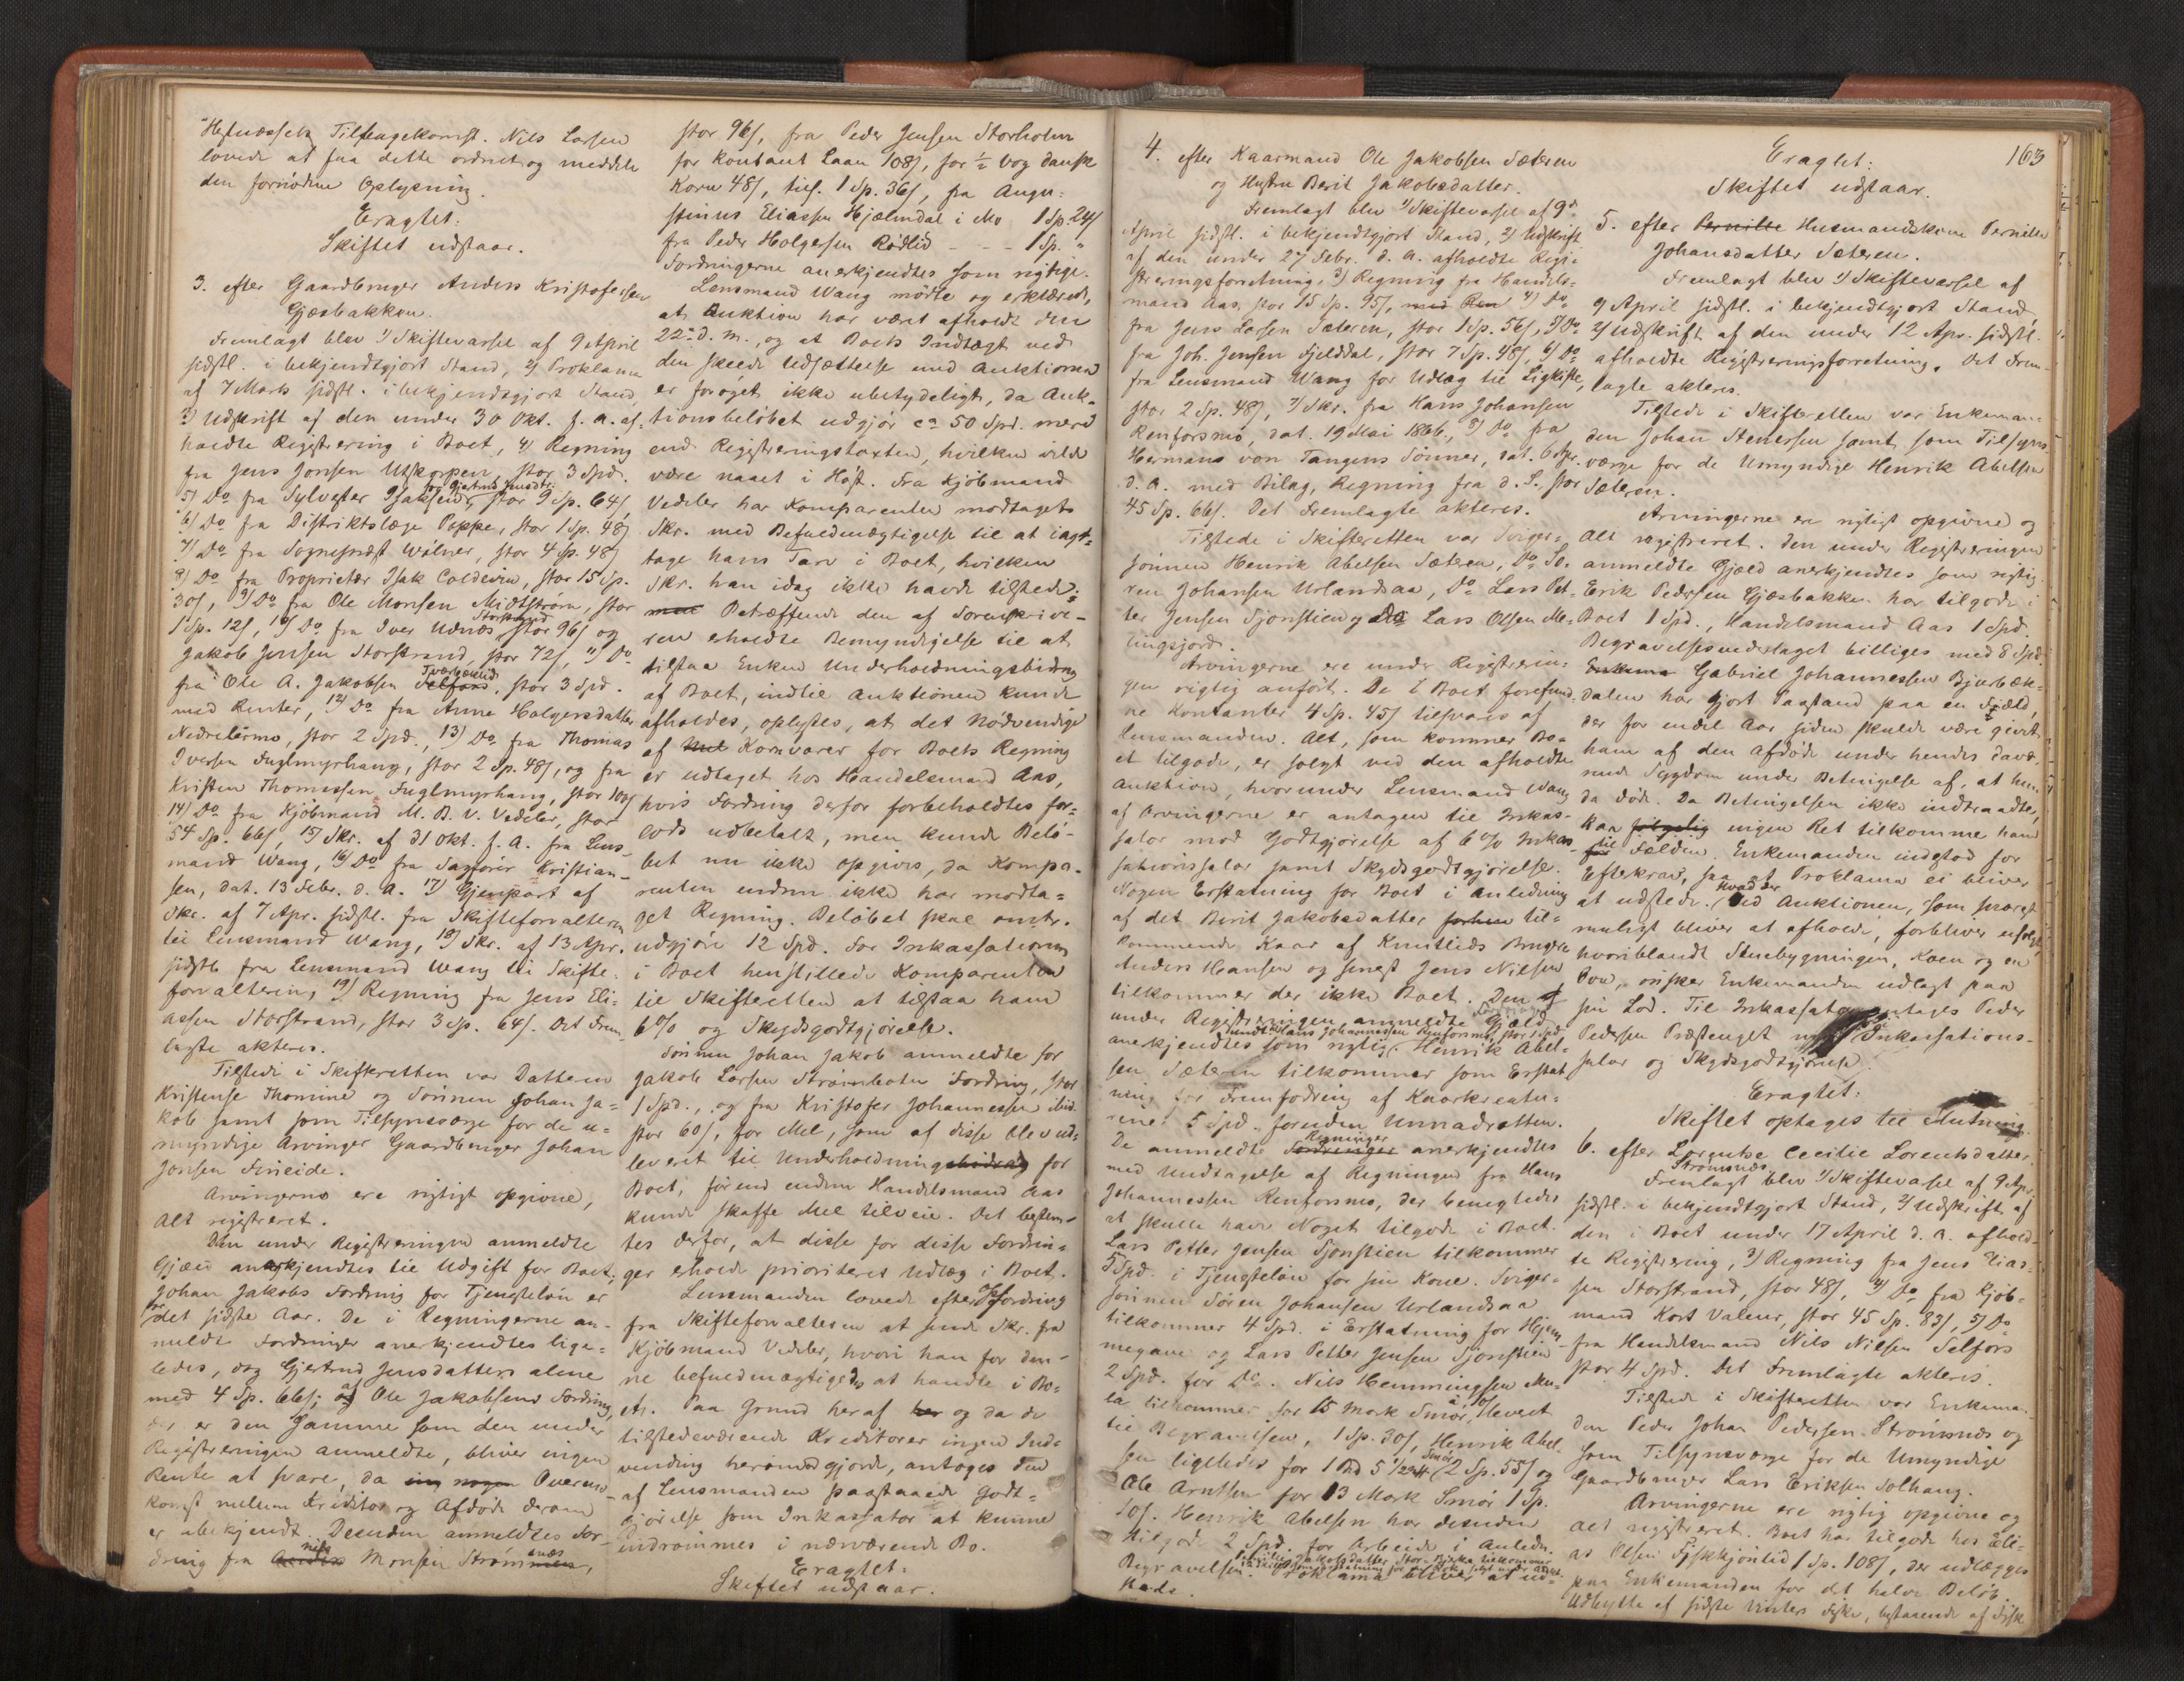 Hefnæssets Tilbagekomst. Nils Larsen
lovede at faa dette ordnet og meddele
den fornödne Oplysning.
Eragtet:
Skiftet udstaar.
3. efter Gaardbruger Anders Kristofersen
Gjæsbakken.
Fremlagt blev 1) Skiftevarsel af 9 April
sidstl. i bekjendtgjort Stand, 2) Proklama
af 7 Marts sidstl. i bekjendtgjort Stand,
3) Udskrift af den under 30 Okt. f. A. af-
holdte Registrering i Boet, 4) Regning
fra Jens Jonsen Utskarpen, stor 3 Spd.
og Gjertrud Jensdtr.
5) Do fra Sylvester Isaksen, stor 9 Sp. 64 s,
6) Do fra Distriktslæge Poppe, stor 1 Sp. 48 s
7) Do fra Sogneprest Wölner, stor 4 Sp. 48 s
8) Do fra Proprietær Isak Coldevin, stor 15 Sp.
30 s, 9) Do fra Ole Monsen Midtstrøm, stor
Storstrand
1 Sp. 12 s, 10) Do fra Iver Udnös, stor 96 s og
Jakob Jensen Storstrand, stor 72 s, 11) Do
Tverbround
fra Ole A. Jakobsen Selfors, stor 3 Spd.
med Renter, 12) Do fra Anna Holgersdatter
Nedreleirmo, stor 2 Spd., 13) Do fra Thomas
Iversen Fuglmyrhaug, stor 2 Sp. 48 s, og fra
Kristen Thomassen Fuglmyrhaug, stor 100 s
14) Do fra Kjöbmand M. B. v. Vedeler, stor
54 Sp. 66 s, 15) Skr. af 31 Okt. f. A. fra Lens-
mand Wang, 16) Do fra Sagförer Kristian-
sen, dat. 13 Febr. d. A. 17) Gjenpart af
Skr. af 7 Apr. sidstl. fra Skifteforvalteren
til Lensmand Wang, 18) Skr. af 13 Apr.
sidstl. fra Lensmand Wang til Skifte-
forvalteren, 19) Regning fra Jens Eli-
assen Storstrand, stor 3 Sp. 64 s. Det Frem-
lagte akteres.
Tilstede i Skifteretten var Datteren
Kristense Thomine og Sönnen Johan Ja-
kob samt som Tilsynsværge for de u-
myndige Arvinger Gaardbruger Johan
Jonsen Fineide.
Arvingerne ere rigtigt opgivne,
Alt registreret.
Den under Registreringen anmeldte
Gjæld anerkjendtes til Udgift for Boet;
Johan Jakobs Fordring for Tjenesteløn er
for det sidste Aar. De i Regningerne an-
meldte Fordringer anerkjendtes lige-
ledes, dog Gjertrud Jensdatters alene
med 4 Sp. 66 s; og af Ole Jakobsens Fordring,
der er den Samme som den under
Registreringen anmeldte, bliver ingen
Rente at svare, da ing nogen Overens-
komst mellem Kreditor og Afdøde derom
er ubekjendt. Desuden anmeldtes For-
dring fra Anders Nils Monsen Strömsnæs,
stor 96 s, fra Peder Jensen Storholm
for kontant Laan 108 s, for ½ Vog dansk
Korn 48 s, tils. 1 Sp. 36 s, fra Augu-
stinus Eliassen Hjælmdal i Mo 1 Sp. 24 s
fra Peder Holgersen Rødlid - - - 1 Sp. "
Fordringerne anerkjendtes som rigtige.
Lensmand Wang mødte og erklærede,
at Auktion har været afholdt den
22de d. M., og at Boets Indtægt ved
den skeede Udsættelse med Auktionen
er forøget ikke ubetydeligt, da Auk-
tionsbeløbet udgjör ca 50 Spd. mere
end Registreringstaxten, hvilken vilde
være naaet i Höst. Fra Kjøbmand
Vedeler har Komparenten modtaget
Skr. med Befuldmægtigelse til at iagt-
tage hans Tarv i Boet, hvilken
Skr. han idag ikke havde tilstede;
men Betræffende den af Sorenskrive-
ren erholdte Bemyndigelse til at
tilstaa Enken Underholdningsbidrag
af Boet, indtil Auktionen kunde
afholdes, oplystes, at det Nødvendige
af Mel Kornvarer for Boets Regning
er udtaget hos Handelsmand Aas,
hvis Fordring derfor forbeholdtes for-
lods udbetalt, men kunde Belø-
bet nu ikke opgives, da Kompa-
renten endnu ikke har modta-
get Regning. Beløbet skal omtr.
udgjöre 12 Spd. For Inkassationen
i Boet henstillede Komparenten
til Skifteretten at tilstaa ham
6 % og Skydsgodtgjørelse.
Sönnen Johan Jakob anmeldte for
Jakob Larsen Strømbotn Fordring, stor
1 Spd., og fra Kristofer Johannessen ibid.
stor 60 s, for Mel, som af disse blev ud-
leveret til Underholdningsbidrag for
Boet, förend endnu Handelsmand Aas
kunde skaffe Mel tilveie. Det bestem-
tes derfor, at disse for disse Fordrin-
ger erholde prioriteret Udlæg i Boet.
Lensmanden lovede efter Opfordring
fra Skifteforvalteren at sende Skr. fra
Kjöbmand Vedeler, hvori han for den-
ne befuldmægtigedes at handle i Bo-
et. Paa Grund heraf her og da de
tilstedeværende Kreditorer ingen Ind-
vending herimod gjorde, antoges den
af Lensmanden paastaaede Godt-
gjörelse som Inkassator at kunne
indrømmes i nærværende Bo.
Eragtet:
Skiftet udstaar.
4. efter Kaarmand Ole Jakobsen Sæteren
og Hustru Berit Jakobsdatter.
Fremlagt blev 1) Skiftevarsel af 9de
April sidstl. i bekjendtgjort Stand, 2) Udskrift
af den under 27 Febr. d. A. afholdte Regi-
streringsforretning, 3) Regning fra Handels-
mand Aas, stor 15 Sp. 95 s, med Ren 4) Do
fra Jens Larsen Sæteren, stor 1 Sp. 56 s, 5) Do
fra Joh. Jensen Fjelddal, stor 7 Sp. 48 s, 6) Do
fra Lensmand Wang for Udlæg til Ligkiste,
stor 2 Sp. 48 s, 7) Skr. fra Hans Johansen
Renforsmo, dat. 19 Mai 1866, 8) Do fra
Hermans von Tangens Sønner, dat. 6 Apr.
d. A. med Bilag, Regning fra d. S. stor
45 Sp. 66 s. Det Fremlagte akteres.
Tilstede i Skifteretten var Sviger-
sönnen Henrik Abelsen Sæteren, Do Sö-
ren Johansen Urlandsaa, Do Lars Pet-
ter Jensen Sjonstien og Do Lars Olsen Me-
lingsjord.
Arvingerne ere under Registrerin-
gen rigtig anført. De i Boet forefund-
ne Kontanter 4 Sp. 45 s tilsvares af
Lensmanden. Alt, som kommer Bo-
et tilgode, er solgt ved den afholdte
Auktion, hvorunder Lensmand Wang
af Arvingerne er antagen til Inkas-
sator mod Godtgjørelse af 6 % Inkas-
sationssalær samt Skydsgodtgjørelse.
Nogen Erstatning for Boet i Anledning
af det Berit Jakobsdatter forhen til-
kommende Kaar af Knutlids Brugere
Anders Hansen og senest Jens Nilsen
tilkommer der ikke Boet. Den af
under Registreringen anmeldte Gjæld
undt. Hans Johannessen Renforsmo, stor 1 Spd.
anerkjendtes som rigtig. Henrik Abel-
sen Sæteren tilkommer som Erstat-
ning for Fremfodring af Kaarkreatu-
rene 5 Spd. foruden Unnadratten.
Regninger
De anmeldte Fordringer anerkjendtes
med Undtagelse af Regningen fra Hans
Johannessen Renforsmo, der benegtedes
at skulle have Noget tilgode i Boet.
Lars Petter Jensen Sjonstien tilkommer
5 Spd. i Tjenesteløn for sin Kone. Sviger-
sönnen Sören Johansen Urlandsaa
tilkommer 4 Spd. i Erstatning for Hjem-
megave og Lars Petter Jensen Sjonstien
2 Spd. for Do. Nils Hemmingsen
tilkommer for 15 Mark Smör, leveret
til Begravelsen, 1 Sp. 30 s, Henrik Abel-
sen ligeledes for 1 Bd 5 ½ Smör 2 Sp. 55 s og
Ole Arntsen for 13 Mark Smör 1 Sp.
10 s. Henrik Abelsen har desuden
tilgode 2 Spd. for Arbeide i Anledn.
Begravelsen. Proklama bliver at ud-
stede.
163
Eragtet:
Skiftet udstaar.
5. efter Pernille Husmandskone Pernille
Johansdatter Sæteren.
Fremlagt blev 1) Skiftevarsel af
9 April sidstl. i bekjendtgjort Stand,
2) Udskrift af den under 12 Apr. sidstl.
afholdte Registreringsforretning. Det Frem-
lagte akteres.
Tilstede i Skifteretten var Enkeman-
den Johan Stenersen samt som Tilsyns-
værge for de Umyndige Henrik Abelsen
Sæteren.
Arvingerne ere rigtigt opgivne og
Alt registreret. Den under Registreringen
anmeldte Gjæld anerkjendtes som rigtig.
Erik Pedersen Gjæsbakken har tilgode i
Boet 1 Spd., Handelsmand Aas 1 Spd.
Begravelsesvederlaget billiges med 8 Spd.
Enkema Gabriel Johannessen Bjerbæk-
dalen har gjort Paastand paa en Fæld,
der for endel Aar siden skulde være givet
ham af den Afdøde under hendes davæ-
rende Sygdom under Betingelse af, at hun
da døde. Da Betingelsen ikke indtraadte,
kan følgelig ingen Ret tilkomme ham
for til Fælden. Enkemanden indestod for
Efterkrav, saa at Proklama ei bliver
at udstede. Hvad der Ved Auktionen, som snarest
muligt bliver at afholde, forbliver usolgt,
hvoriblandt Stuebygningen, Koen og en
Vou, önsker Enkemanden udlagt paa
sin Lod. Til Inkassator antages Peder
Pedersen Præstenget mod Inkassations-
salær og Skydsgodtgjørelse.
Eragtet:
Skiftet optages til Slutning.
6. efter Lorentse Cecilie Lorentsdatter
Strömsnæs
Fremlagt blev 1) Skiftevarsel af 9 Apr.
sidstl. i bekjendtgjort Stand, 2) Udskrift af
den i Boet under 17 April d. A. afhold-
te Registrering, 3) Regning fra Jens Elias-
sen Storstrand, stor 48 s, 4) Do fra Kjöb-
mand Kort Valeur, stor 45 Sp. 83 s, 5) Do
fra Handelsmand Nils Nilsen Selfors
stor 4 Spd. Det Fremlagte akteres.
Tilstede i Skifteretten var Enkeman-
den Peder Johan Pedersen Strömsnæs og
som Tilsynsværge for de Umyndige
Gaardbruger Lars Eriksen Solhaug.
Arvingerne ere rigtig opgivne og
Alt registreret. Boet har tilgode hos Eli-
as Olsen Fiskkjönlid 1 Sp. 108 s, der udlægges
paa Enkemanden for det halve Beløb.
Udbytte af sidste Vinters Fiske, bestaaende af Fisk